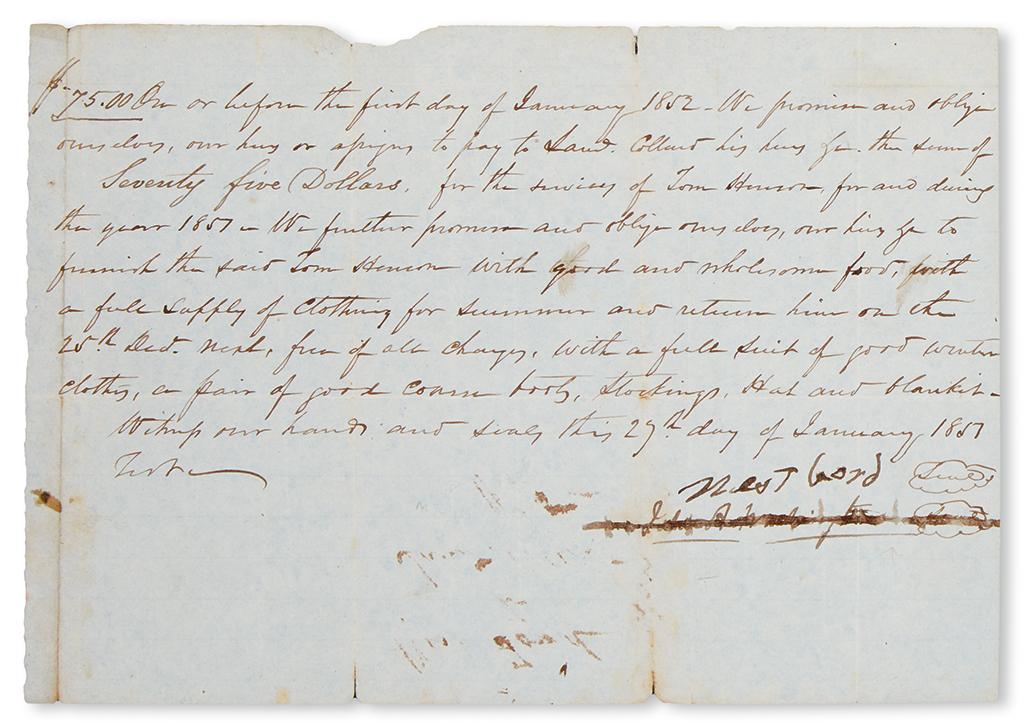 $75.00 On or before the first day of January 1852 - We promise and oblige
ourselves, our heirs or assigns to pay to Saml. Collard his heirs &c. the sum of
Seventy five Dollars, for the services of Tom Henson, for and during
the year 1851 - We further promise and oblige ourselves, our heirs &c to
furnish the said Tom Henson with good and wholesome food, with
a full supply of Clothing for summer and return him on the
25th Decd. next, free of all charges, with a full suit of good winter
clothes, a pair of good coarse boots, stockings, Hat and blanket -
Witness our hands and seals this 27th day of January 1851
Teste
West (Seal)